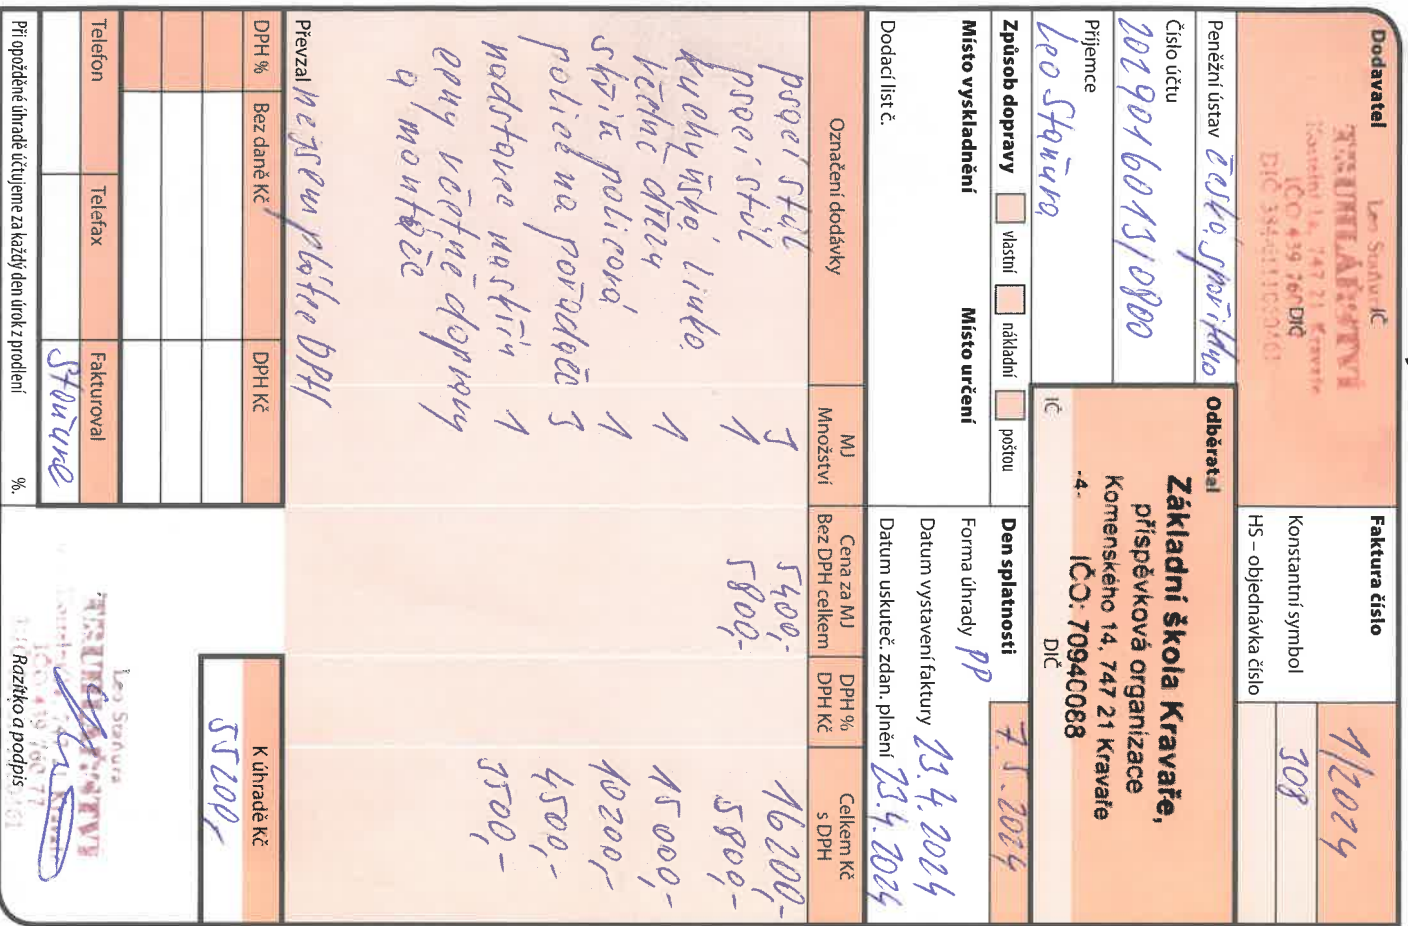 Dodavatel
Leo Staňura IČ
TRUHLÁŘSTVÍ
747 21 Kravaře
IČO 439 760 DIČ
Faktura číslo 1/2024
Konstantní symbol 308
HS – objednávka číslo
Peněžní ústav Česká spořitelna
Číslo účtu
2029016013/0800
Příjemce
Leo Staňura
Odběratel
Základní škola Kravaře,
příspěvková organizace
Komenského 14, 747 21 Kravaře
-4- IČO: 70940088
IČ DIČ
Způsob dopravy vlastní nákladní poštou
Den splatnosti 7.5.2024
Místo vyskladnění Místo určení
Forma úhrady PP
Datum vystavení faktury 23.4.2024
Dodací list č.
Datum uskuteč. zdan. plnění 23.4.2024
Označení dodávky MJ Množství Cena za MJ Bez DPH celkem DPH % DPH Kč Celkem Kč s DPH
psací stůl 3 5400,- 16200,-
psací stůl 1 5800,- 5800,-
kuchyňská linka 1 15000,-
včetně dřezu
skříň policová 1 10200,-
police na pořadače 3 4500,-
nadstavec na skříň 1 3500,-
ceny včetně dopravy
a montáže
Převzal nejsem plátce DPH
DPH % Bez daně Kč DPH Kč
K úhradě Kč
55200,-
Telefon Telefax Fakturoval
Staňura
Leo Staňura
TRUHLÁŘSTVÍ
Razítko a podpis
Při opožděné úhradě účtujeme za každý den úrok z prodlení %.